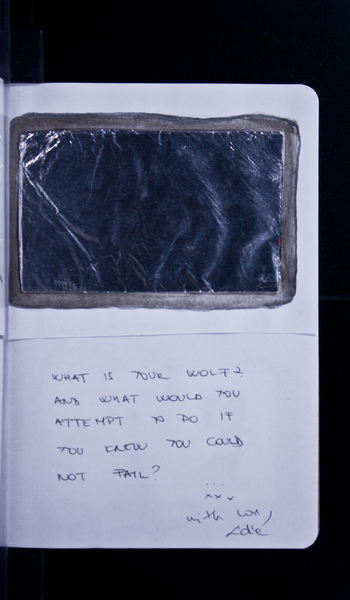 WHAT IS YOUR WOLF?
AND WHAT WOULD YOU
ATTEMPT TO DO IF
YOU KNEW YOU COULD
NOT FAIL?
...
xxx
with love,